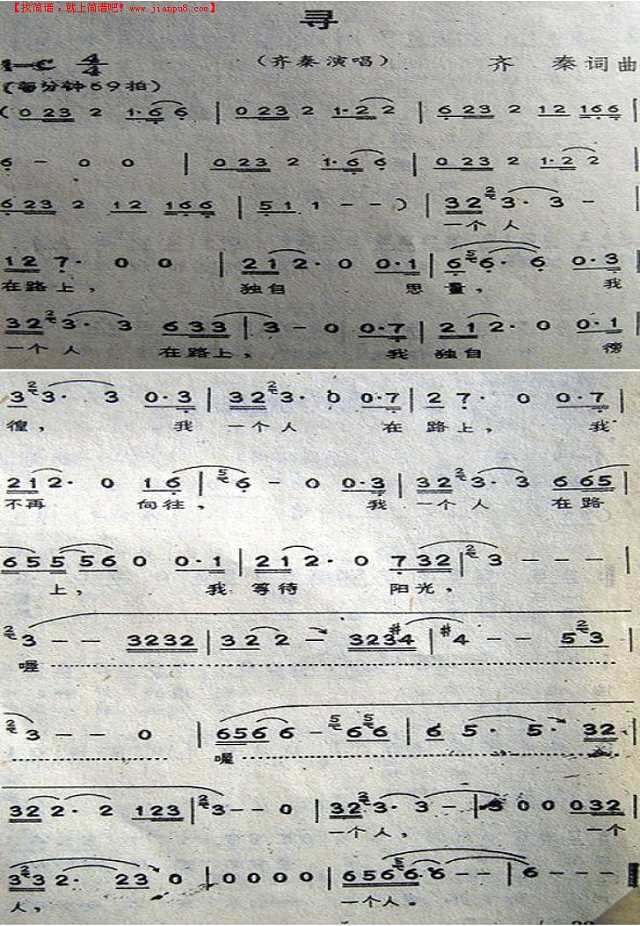 【找简谱,就上简谱吧! www.jianpu8.com】
寻
1=C 4/4 (齐秦演唱) 齐 秦词曲
(每分钟69拍)
( 0 23 2 1·6 6 | 0 23 2 1·2 2 | 6 23 2 12 166 |
6 - 0 0 | 0 23 2 1·6 6 | 0 23 2 1·2 2 |
6 23 2 12 166 | 51 1 - - ) | 32 2 3· 3 - |
一个 人
12 7· 0 0 | 212· 0 0·1 | 6 5 6· 6 0·3 |
在路上, 独自 思 量, 我
32 2 3· 3 633 | 3 - 0 0·7 | 212· 0 0·1 |
一个 人 在路上, 我 独自 徬
3 2 3· 3 0·3 | 32 2 3· 0 0·7 | 2 7· 0 0·7 |
徨, 我 一个人 在 路上, 我
212· 0 16 | 5 6 - 0 0·3 | 32 2 3· 3 665 |
不再 向往, 我 一个人 在路
655 556 0 0·1 | 212· 0 732 | 2 3 - - - |
上, 我 等待 阳光,
2 3 - - 3232 | 32 2 - 323#4 | #4 - - 5 2 3 |
喔
2 3 - - 0 | 656 6 - 5 6 5 6 | 6 5· 5· 32 |
喔
32 2· 2 123 | 2 3 - - 0 | 32 2 3· 3 - | 3 0 0 0 32 |
一个 人, 一个
3 2 3 2· 23 0 | 0 0 0 0 | 656 6· 6 - - | 6 - - - |
人, 一个人。